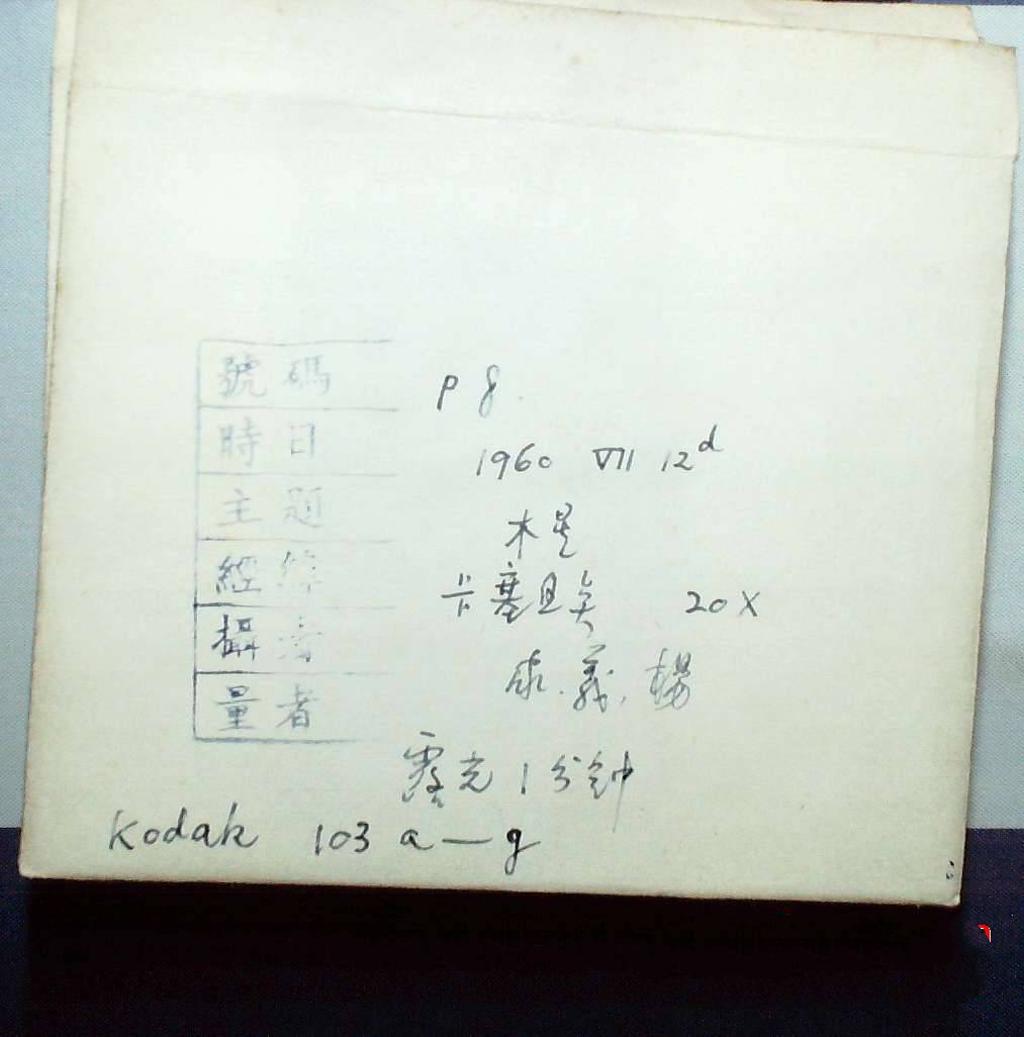 號碼 P 8.
時日 1960 VII 12d
主題 木星
經緯 卡塞且美 20X
攝者 義. 楊
量者
露光1分鈡
Kodak 103 a—g